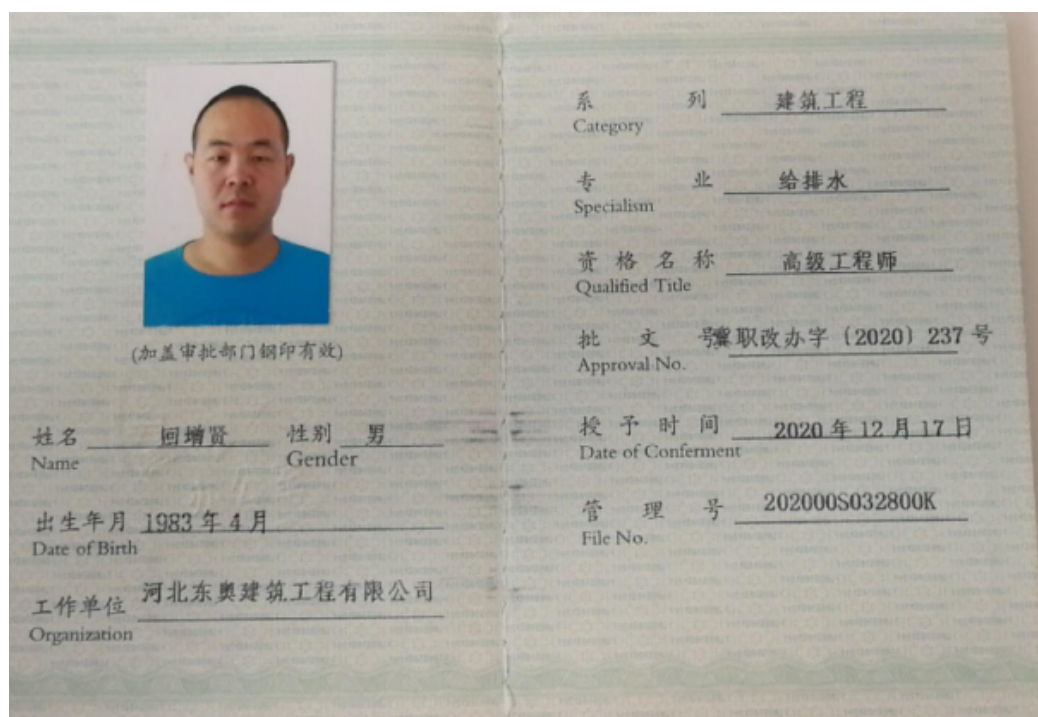 (加盖审批部门钢印有效)
姓名 回增贤 性别 男
Name Gender
出生年月 1983年4月
Date of Birth
工作单位 河北东奥建筑工程有限公司
Organization
系列 建筑工程
Category
专业 给排水
Specialism
资格名称 高级工程师
Qualified Title
批文号 冀职改办字〔2020〕237号
Approval No.
授予时间 2020年12月17日
Date of Conferment
管理号 202000S032800K
File No.